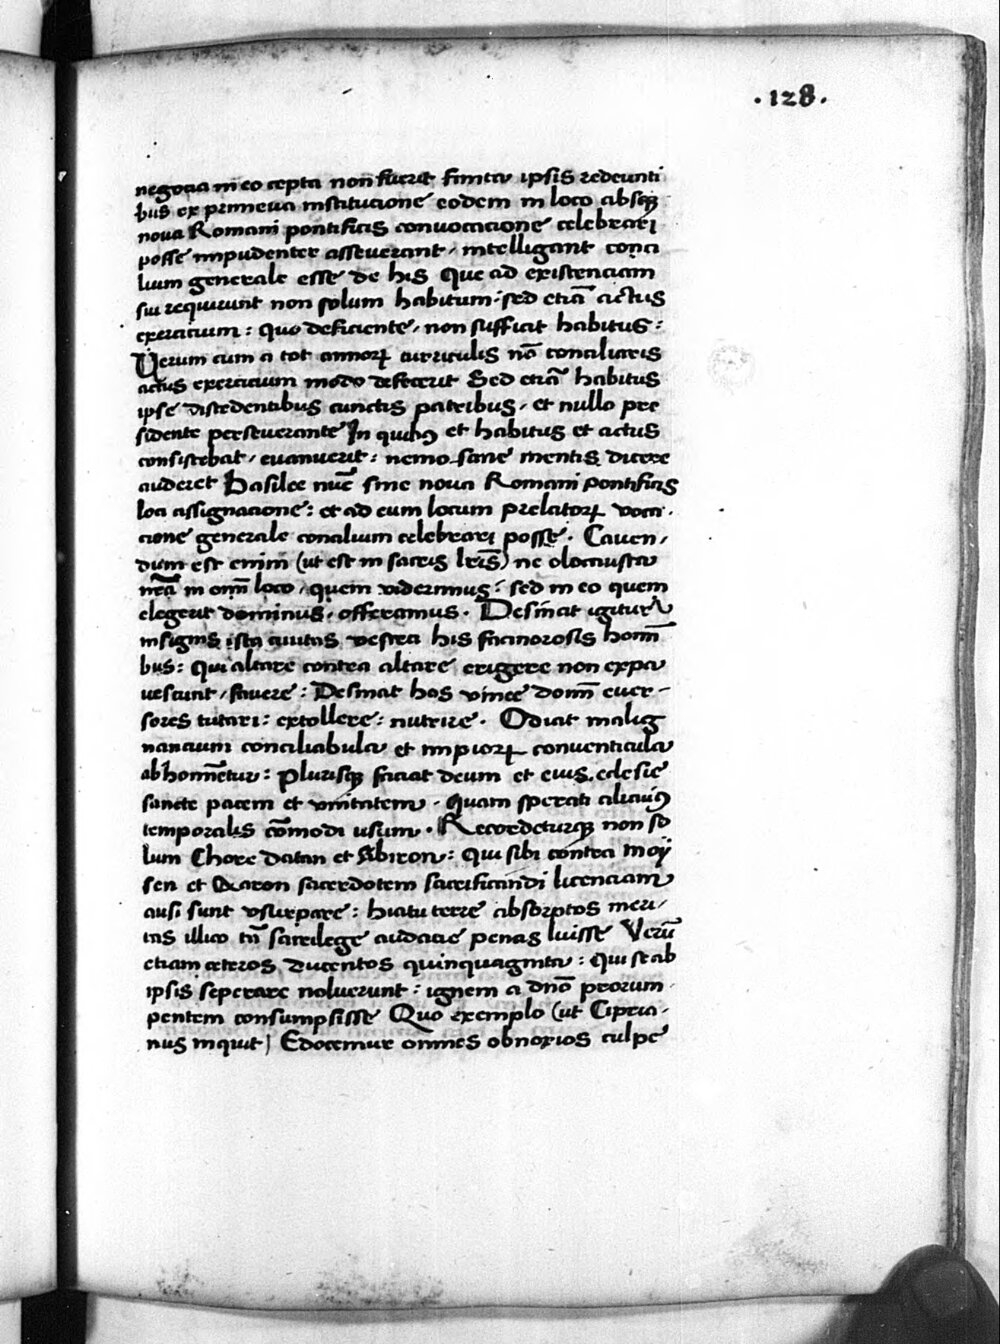 .128.
negocia in eo cepta non fuerit finita ipsis redeunti
bus ex primeua institucione eodem in loco absqꝫ
noua Romani pontificis conuocacione celebrari
posse impudenter asseuerant, intelligant conci
lium generale esse de his que ad existenciam
sui requirunt non solum habitum: sed etiā actus
exercicium: quo deficiente, non sufficit habitus:
Verum cum a tot annorꝝ curriculis nō conciliaris
actus exercicium modo defecerit Sed etiā habitus
ipse discedentibus cunctis patribus, et nullo pre
sidente perseuerante In quibꝰ et habitus et actus
consistebat, euanuerit: nemo sane mentis dicere
auderet Basilee nūc sine noua Romani pontificis
loci assignacione: et ad eum locum prelatorꝝ voca,
cione generale concilium celebrari posse. Cauen,
dum est enim (ut est in sacris lrīs) ne olocausta
nrā in omī loco, quem viderimus: sed in eo quem
elegerit dominus, offeramus. Desinat igitur
insignis ista ciuitas vestra his facinorosis homī
bus: qui altare contra altare erigere non expa
uescunt, fauere: Desinat hos vinee domī euer-
sores tutari: extollere: nutrire. Odiat malig
nancium conciliabula et impiorꝝ conuenticula
abhomīetur: Plurisqꝫ faciat deum et eius ecclesie
sancte pacem et vnitatem, quam sperati alicuiꝰ
temporalis cōmodi usum. Recordeturqꝫ non so
lum Chore Datan et Abiron: qui sibi contra moy
sen et Aaron sacerdotem sacrificandi licenciam
ausi sunt vsurpare: hiatu terre absorptos meri,
tas illico tn̄ sacrilege audacie penas luisse Verū
etiam ceteros ducentos quinquaginta: qui se ab
ipsis seperare noluerunt: ignem a dn̄o prorum,
pentem consumpsisse Quo exemplo (ut Cipria,
nus inquit) Edocemur omnes obnoxios culpe